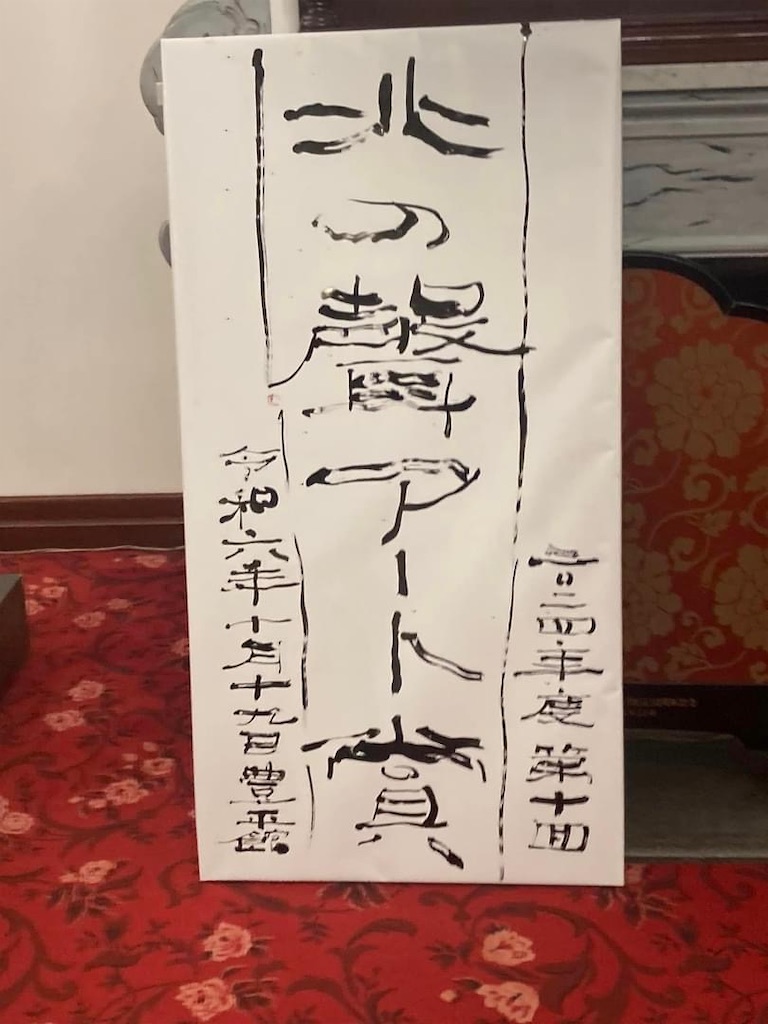 二〇二四年度 第十回
北の聲アート賞
令和六年十月十九日豊平館